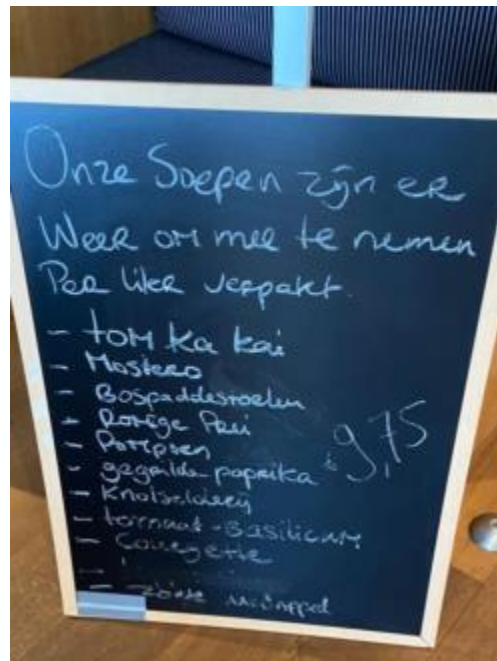 Onze Soepen zijn er
Weer om mee te nemen
Per liter verpakt.
- tom ka kai
- Mosterd
- Bospaddestoelen
- Romige Prei
- Pompoen
- gegrilde paprika à 9,75
- Knolselderij
- tomaat-Basilicum
- Courgette
-
- zoete aardappel